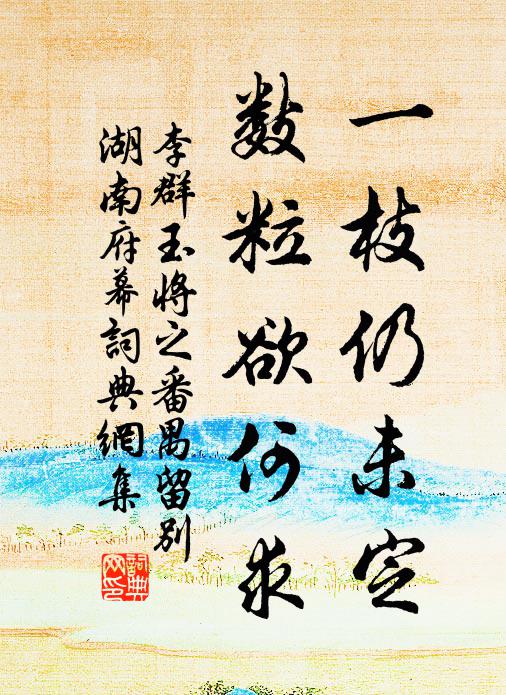 一枝仍未定
数粒欲何求
李群玉將之番禺留别
湖南府幕詞典網集
詞典
网印